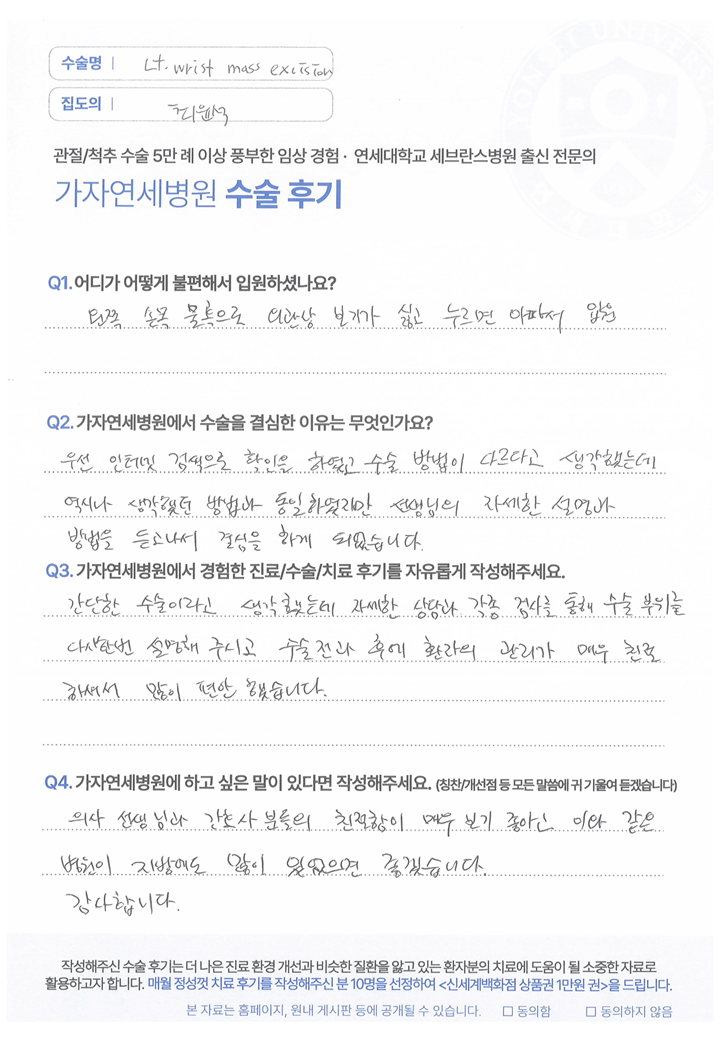 수술명 | Lt. wrist mass excision
집도의 | 최윤석
관절/척추 수술 5만 례 이상 풍부한 임상 경험 · 연세대학교 세브란스병원 출신 전문의
가자연세병원 수술 후기
Q1. 어디가 어떻게 불편해서 입원하셨나요?
왼쪽 손목 물혹으로 외관상 보기가 싫고 누르면 아파서 입원
Q2. 가자연세병원에서 수술을 결심한 이유는 무엇인가요?
우선 인터넷 검색으로 확인을 하였고 수술 방법이 다르다고 생각했는데
역시나 생각했던 방법과 동일하였지만 선생님의 자세한 설명과
방법을 듣고나서 결심을 하게 되었습니다.
Q3. 가자연세병원에서 경험한 진료/수술/치료 후기를 자유롭게 작성해주세요.
간단한 수술이라고 생각했는데 자세한 상담과 각종 검사를 통해 수술 부위를
다시한번 설명해 주시고 수술전과 후에 환자의 관리가 매우 친절
하셔서 많이 편안했습니다.
Q4. 가자연세병원에 하고 싶은 말이 있다면 작성해주세요. (칭찬/개선점 등 모든 말씀에 귀 기울여 듣겠습니다)
의사 선생님과 간호사분들의 친절함이 매우 보기 좋아 이와 같은
병원이 지방에도 많이 있었으면 좋겠습니다.
감사합니다.
작성해주신 수술 후기는 더 나은 진료 환경 개선과 비슷한 질환을 앓고 있는 환자분의 치료에 도움이 될 소중한 자료로
활용하고자 합니다. 매월 정성껏 치료 후기를 작성해주신 분 10명을 선정하여 <신세계백화점 상품권 1만원 권>을 드립니다.
본 자료는 홈페이지, 원내 게시판 등에 공개될 수 있습니다. □ 동의함 □ 동의하지 않음